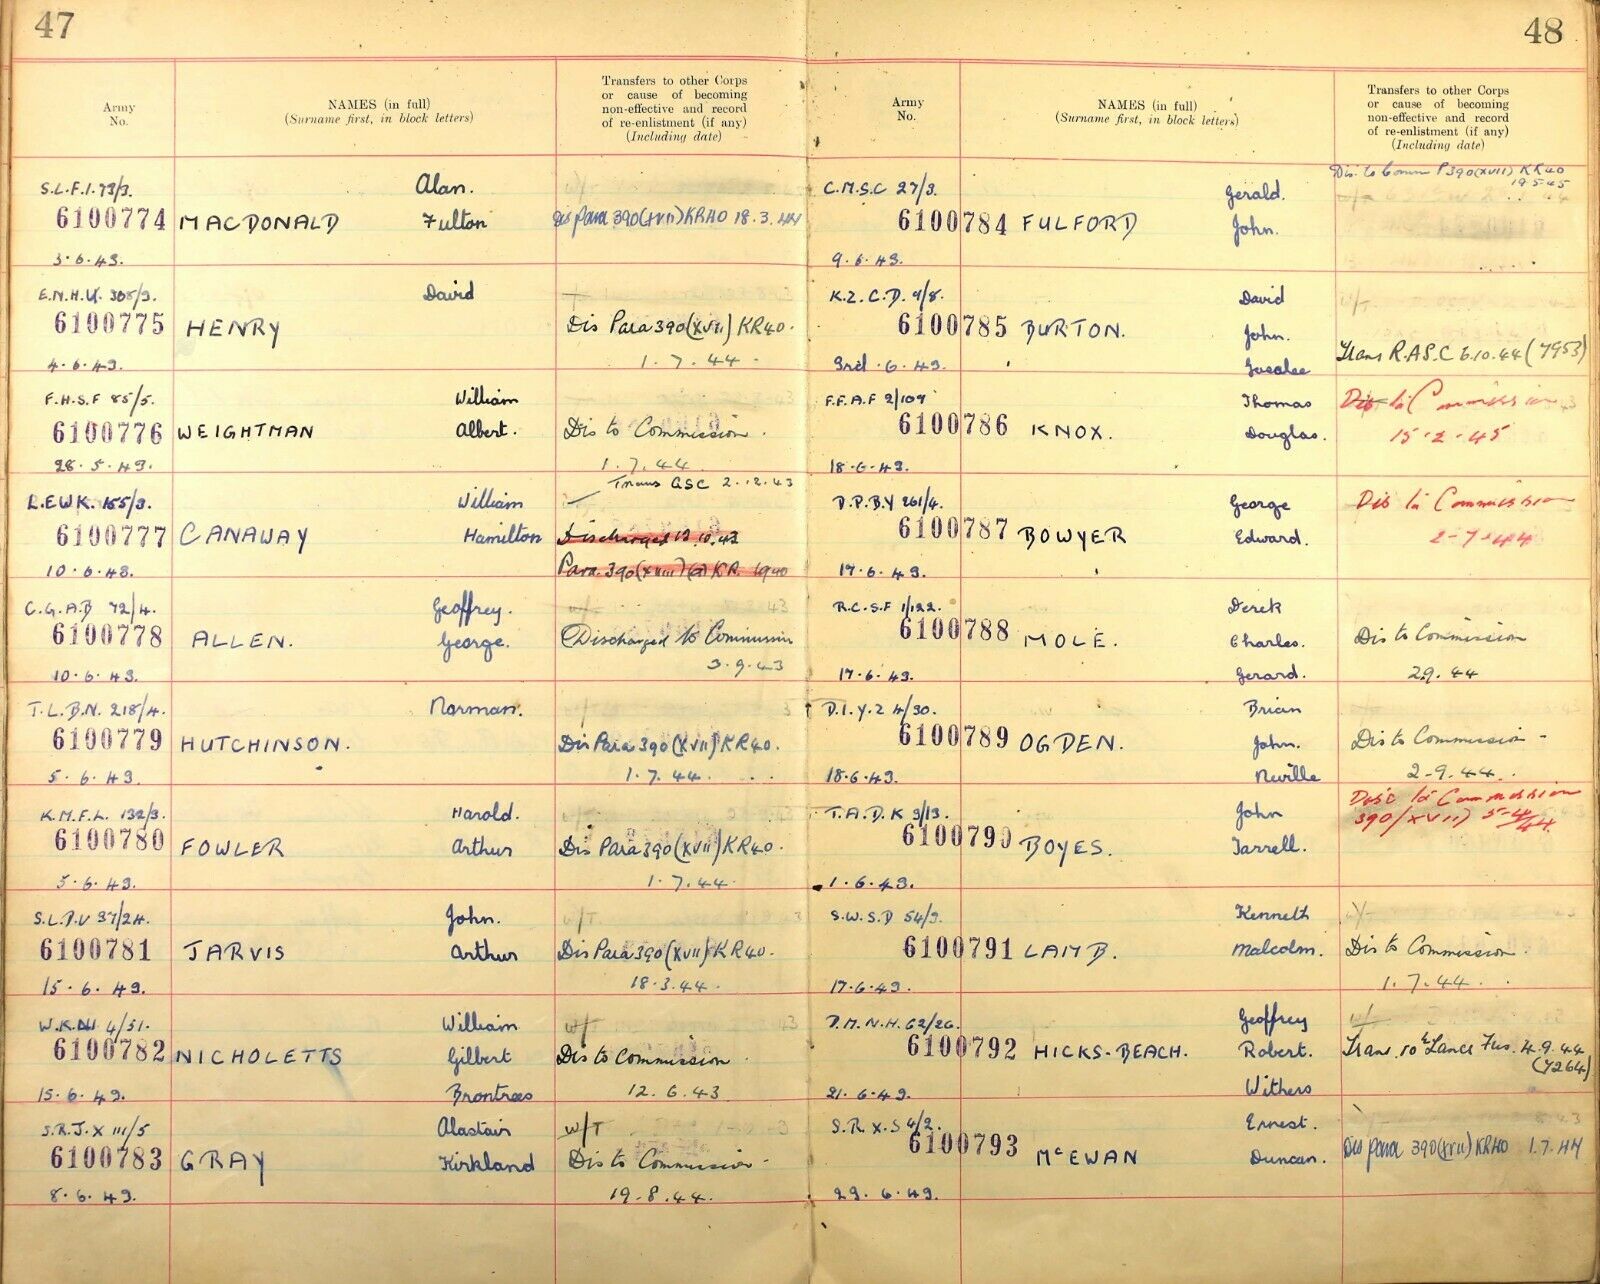 47
Army
No.
NAMES (in full)
(Surname first, in block letters)
Transfers to other Corps
or cause of becoming
non-effective and record
of re-enlistment (if any)
(Including date)
S.L.F.1. 73/3. Alan.
6100774 MACDONALD Fulton Dis para 390(XVII) KR40 18.3.44
3.6.43.
E.N.H.U. 308/3. David
6100775 HENRY Dis Para 390(XVII) KR40.
4.6.43. 1.7.44.
F.H.S.F 85/5. William
6100776 WEIGHTMAN Albert. Dis to Commission.
28.5.43. 1.7.44
Trans GSC 2.12.43
L.E.W.K. 155/3. William
6100777 CANAWAY Hamilton Discharged 13.10.43
10.6.43. Para. 390(XVIII)(a) KR. 1940
C.G.A.B 72/4. Geoffrey.
6100778 ALLEN. George. Discharged to Commission
10.6.43. 3.9.43
T.L.B.N. 218/4. Norman.
6100779 HUTCHINSON. Dis Para 390(XVII) KR40.
5.6.43. 1.7.44.
K.M.F.L. 132/3. Harold.
6100780 FOWLER Arthur Dis Para 390(XVII) KR40.
5.6.43. 1.7.44.
S.L.D.V 37/24. John. W/T
6100781 JARVIS Arthur Dis Para 390(XVII) KR40.
15.6.43. 18.3.44.
4/51. William W/T
6100782 NICHOLETTS Gilbert Dis to Commission
15.6.43. 12.6.43
S.R.J.X 111/5 Alastair W/T
6100783 GRAY Kirkland Dis to Commission.
8.6.43. 19.8.44.
48
Army
No.
NAMES (in full)
(Surname first, in block letters)
Transfers to other Corps
or cause of becoming
non-effective and record
of re-enlistment (if any)
(Including date)
Dis. to Comm P390(XVII) KR40
19.5.45
C.M.S.C 27/3. Gerald.
6100784 FULFORD John.
9.6.43.
K.Z.C.D. 9/8. David
6100785 BURTON. John.
3rd.6.43. Trans R.A.S.C 6.10.44 (7953)
F.F.A.F 2/109 Thomas Dis to Commission
6100786 KNOX. Douglas. 15-2-45
18.6.43.
D.P.B.Y 261/4. George Dis to Commission
6100787 BOWYER Edward. 2-7-44
17.6.43.
R.C.S.F 1/122. Derek
6100788 MOLE. Charles. Dis to Commission
17.6.43. Gerard. 2.9.44
D.I.Y.Z 4/30. Brian
6100789 OGDEN. John. Dis to Commission -
18.6.43. Neville 2-9.44.
T.A.D.K 3/13. John Disc to Commission
390/XVII) 5-4/44.
6100790 BOYES. Tarrell.
1.6.43.
S.W.S.D 54/3. Kenneth W/T
6100791 LAMB. Malcolm. Dis to Commission.
17.6.43. 1.7.44.
D.M.N.H. 62/26. Geoffrey W/T
6100792 HICKS-BEACH. Robert. Trans. 10th Lancs Fus. 4.9.44
(7264)
21.6.43. Withers
S.R.X.S 4/2. Ernest.
6100793 McEWAN Duncan. Dis para 390(XVII) KR40 1.7.44
29.6.43.